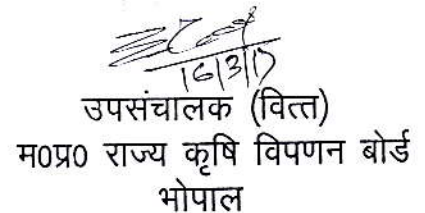 16/3/17
उपसंचालक (वित्त)
म0प्र0 राज्य कृषि विपणन बोर्ड
भोपाल